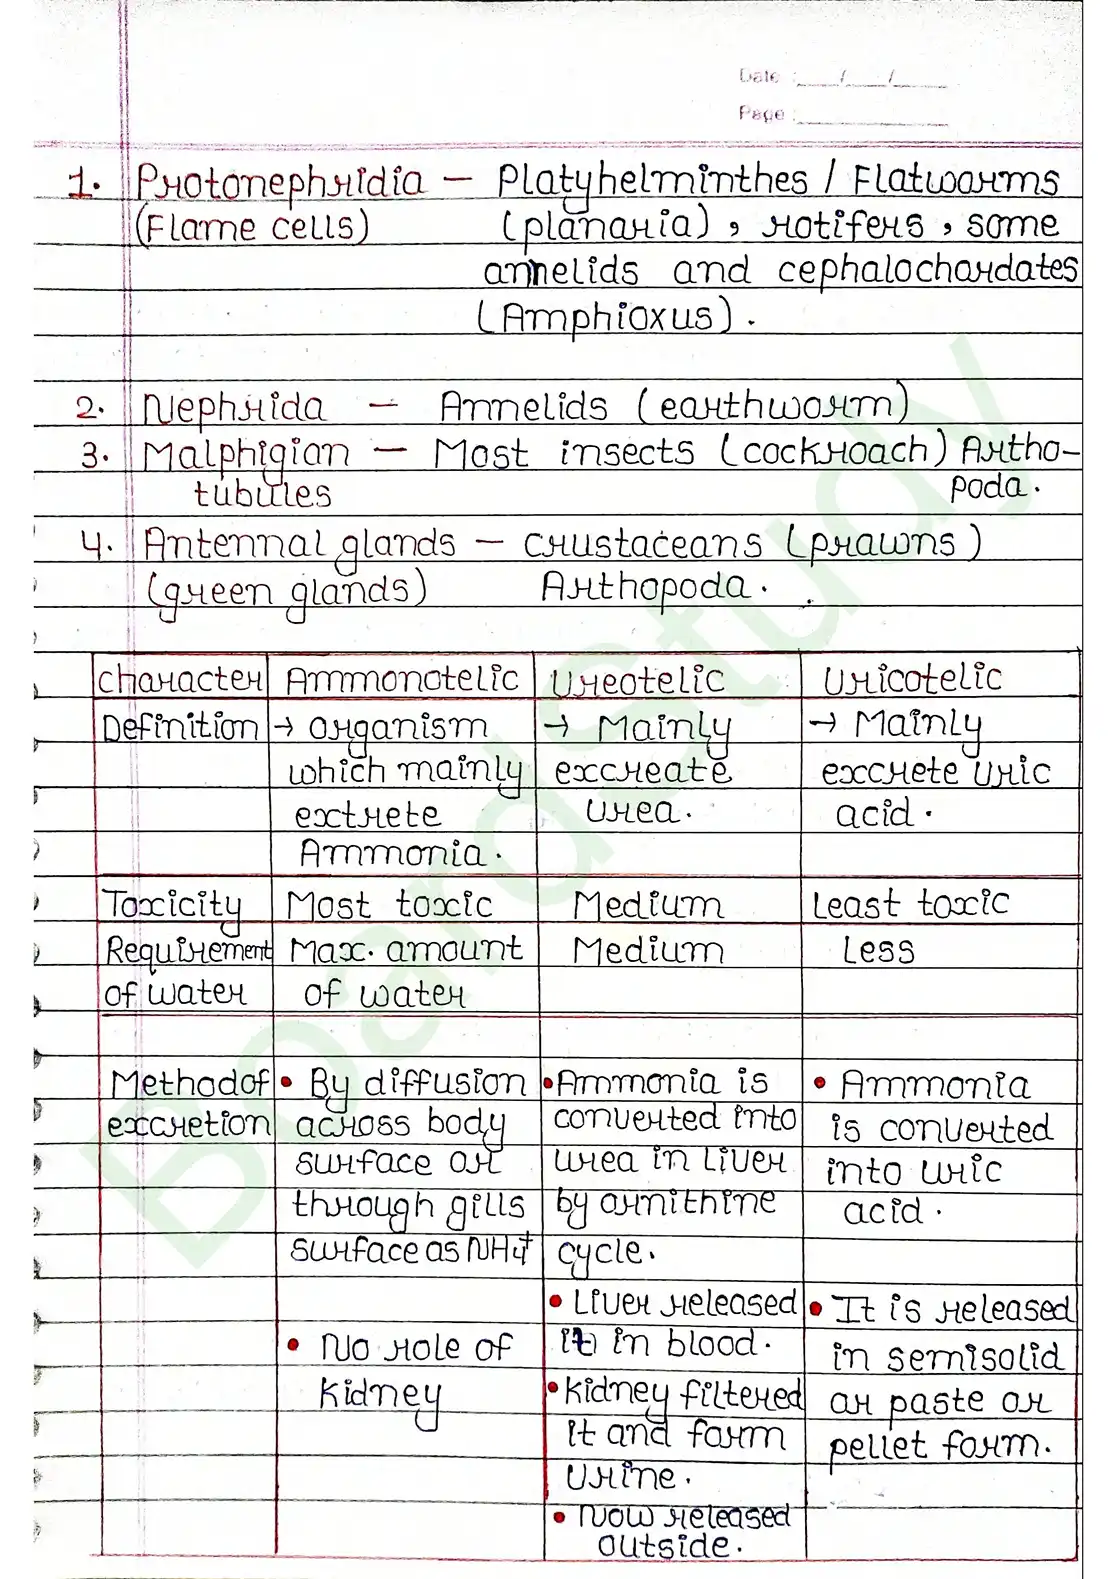 Date : ___/___/___
Page : ___________
1. Protonephridia — Platyhelminthes / Flatworms
(Flame cells) (planaria) , rotifers , some
annelids and cephalochordates
(Amphioxus) .
2. Nephrida — Annelids (earthworm)
3. Malphigian — Most insects (cockroach) Artho-
tubules poda .
4. Antennal glands — crustaceans (prawns)
(green glands) Arthopoda .
character Ammonotelic Ureotelic Uricotelic
Definition → organism → Mainly → Mainly
which mainly excreate excrete uric
extrete urea . acid .
Ammonia .
Toxicity Most toxic Medium Least toxic
Requirement Max. amount Medium Less
of water of water
Method of • By diffusion • Ammonia is • Ammonia
excretion across body converted into is converted
surface or urea in liver into uric
through gills by ornithine acid .
surface as NH4+ cycle .
• Liver released • It is released
• No role of it in blood . in semisolid
kidney • kidney filtered or paste or
it and form pellet form .
urine .
• Now released
outside .
BoardStudy